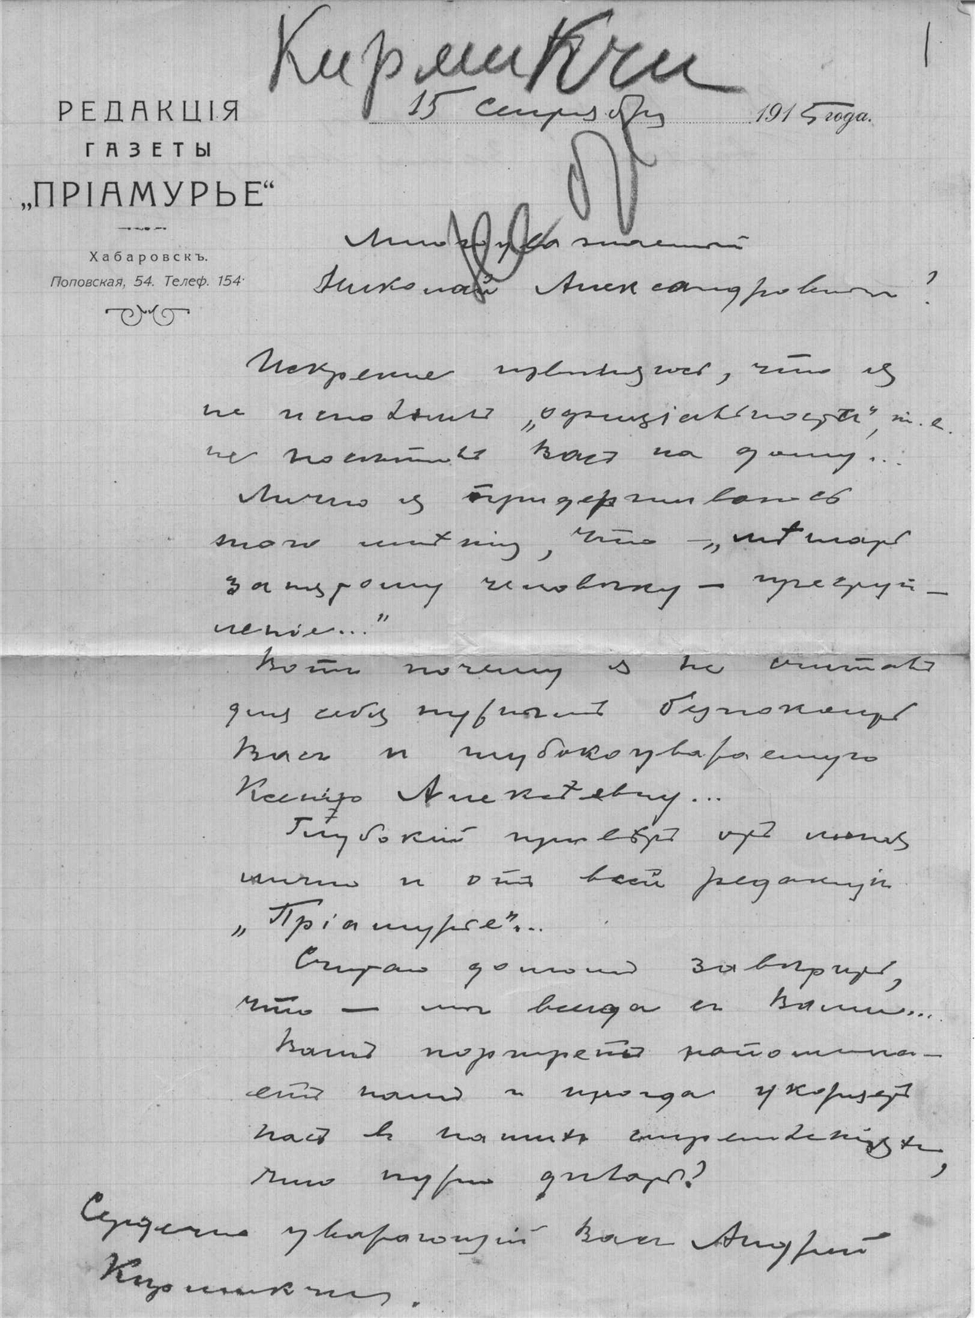 Кирмикчи
РЕДАКЦІЯ
ГАЗЕТЫ
„ПРІАМУРЬЕ“
Хабаровскъ.
Поповская, 54. Телеф. 154
15 сентября 1915 года.
Многоуважаемый
Николай Александровичъ!
Искренне извиняюсь, что я
не исполнилъ „официальность“, т. е.
не посѣтилъ Васъ на дому...
Лично я придерживаюсь
того мнѣнія, что — „мѣшать
занятому человѣку — преступ-
леніе...”
Вотъ почему я не считалъ
для себя нужнымъ безпокоить
Васъ и глубокоуважаемую
Ксенію Алексѣевну...
Глубокій привѣтъ отъ меня
лично и отъ всей редакціи
„Пріамурье”...
Считаю долгомъ завѣрить,
что — мы всегда съ Вами...
Вашъ портретъ напомина-
етъ намъ и иногда укоряетъ
насъ въ нашихъ стремленіяхъ,
что нужно дѣлать?
Сердечно уважающій Васъ Андрей
Кирмикчи.